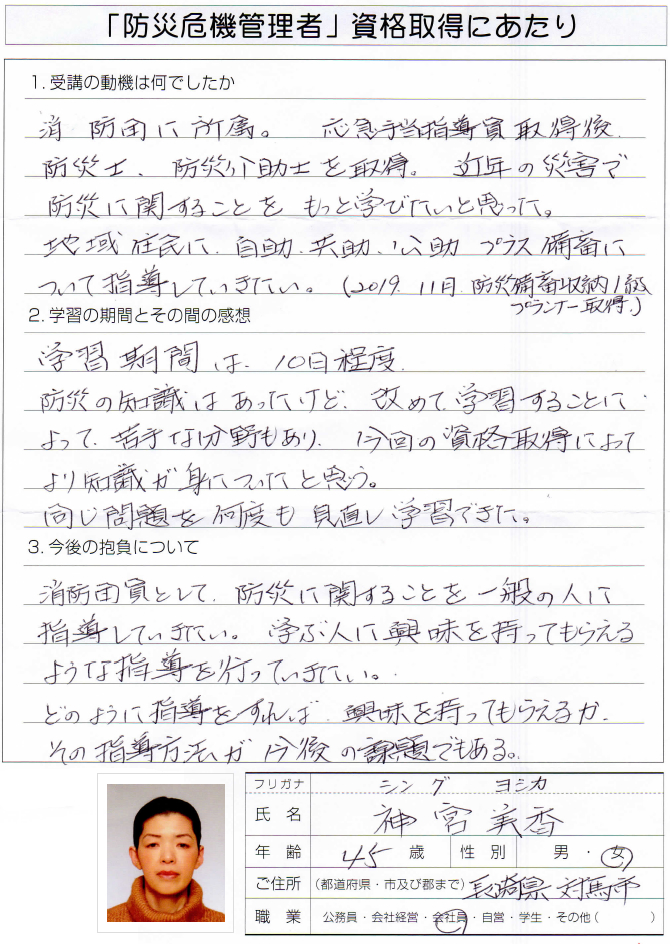 「防災危機管理者」資格取得にあたり
1. 受講の動機は何でしたか
消防団に所属。 応急手当指導員取得後、
防災士、防災介助士を取得。近年の災害で
防災に関することをもっと学びたいと思った。
地域住民に、自助、共助、公助 プラス備蓄に
ついて指導していきたい。(2019. 11月. 防災備蓄収納1級
プランナー取得.)
2. 学習の期間とその間の感想
学習期間は、10日程度.
防災の知識はあったけど、改めて学習することに
よって、苦手な分野もあり、今回の資格取得によって
より知識が身についたと思う。
同じ問題を何度も見直し学習できた。
3. 今後の抱負について
消防団員として、防災に関することを一般の人に
指導していきたい。学ぶ人に興味を持ってもらえる
ような指導を行っていきたい。
どのように指導をすれば、興味を持ってもらえるか、
その指導方法が今後の課題でもある。
フリガナ シング ヨシカ
氏 名 神宮美香
年 齢 45 歳 性 別 男 ・ 女
ご住所 (都道府県・市及び郡まで) 長崎県対馬市
職 業 公務員・会社経営・会社員・自営・学生・その他( )